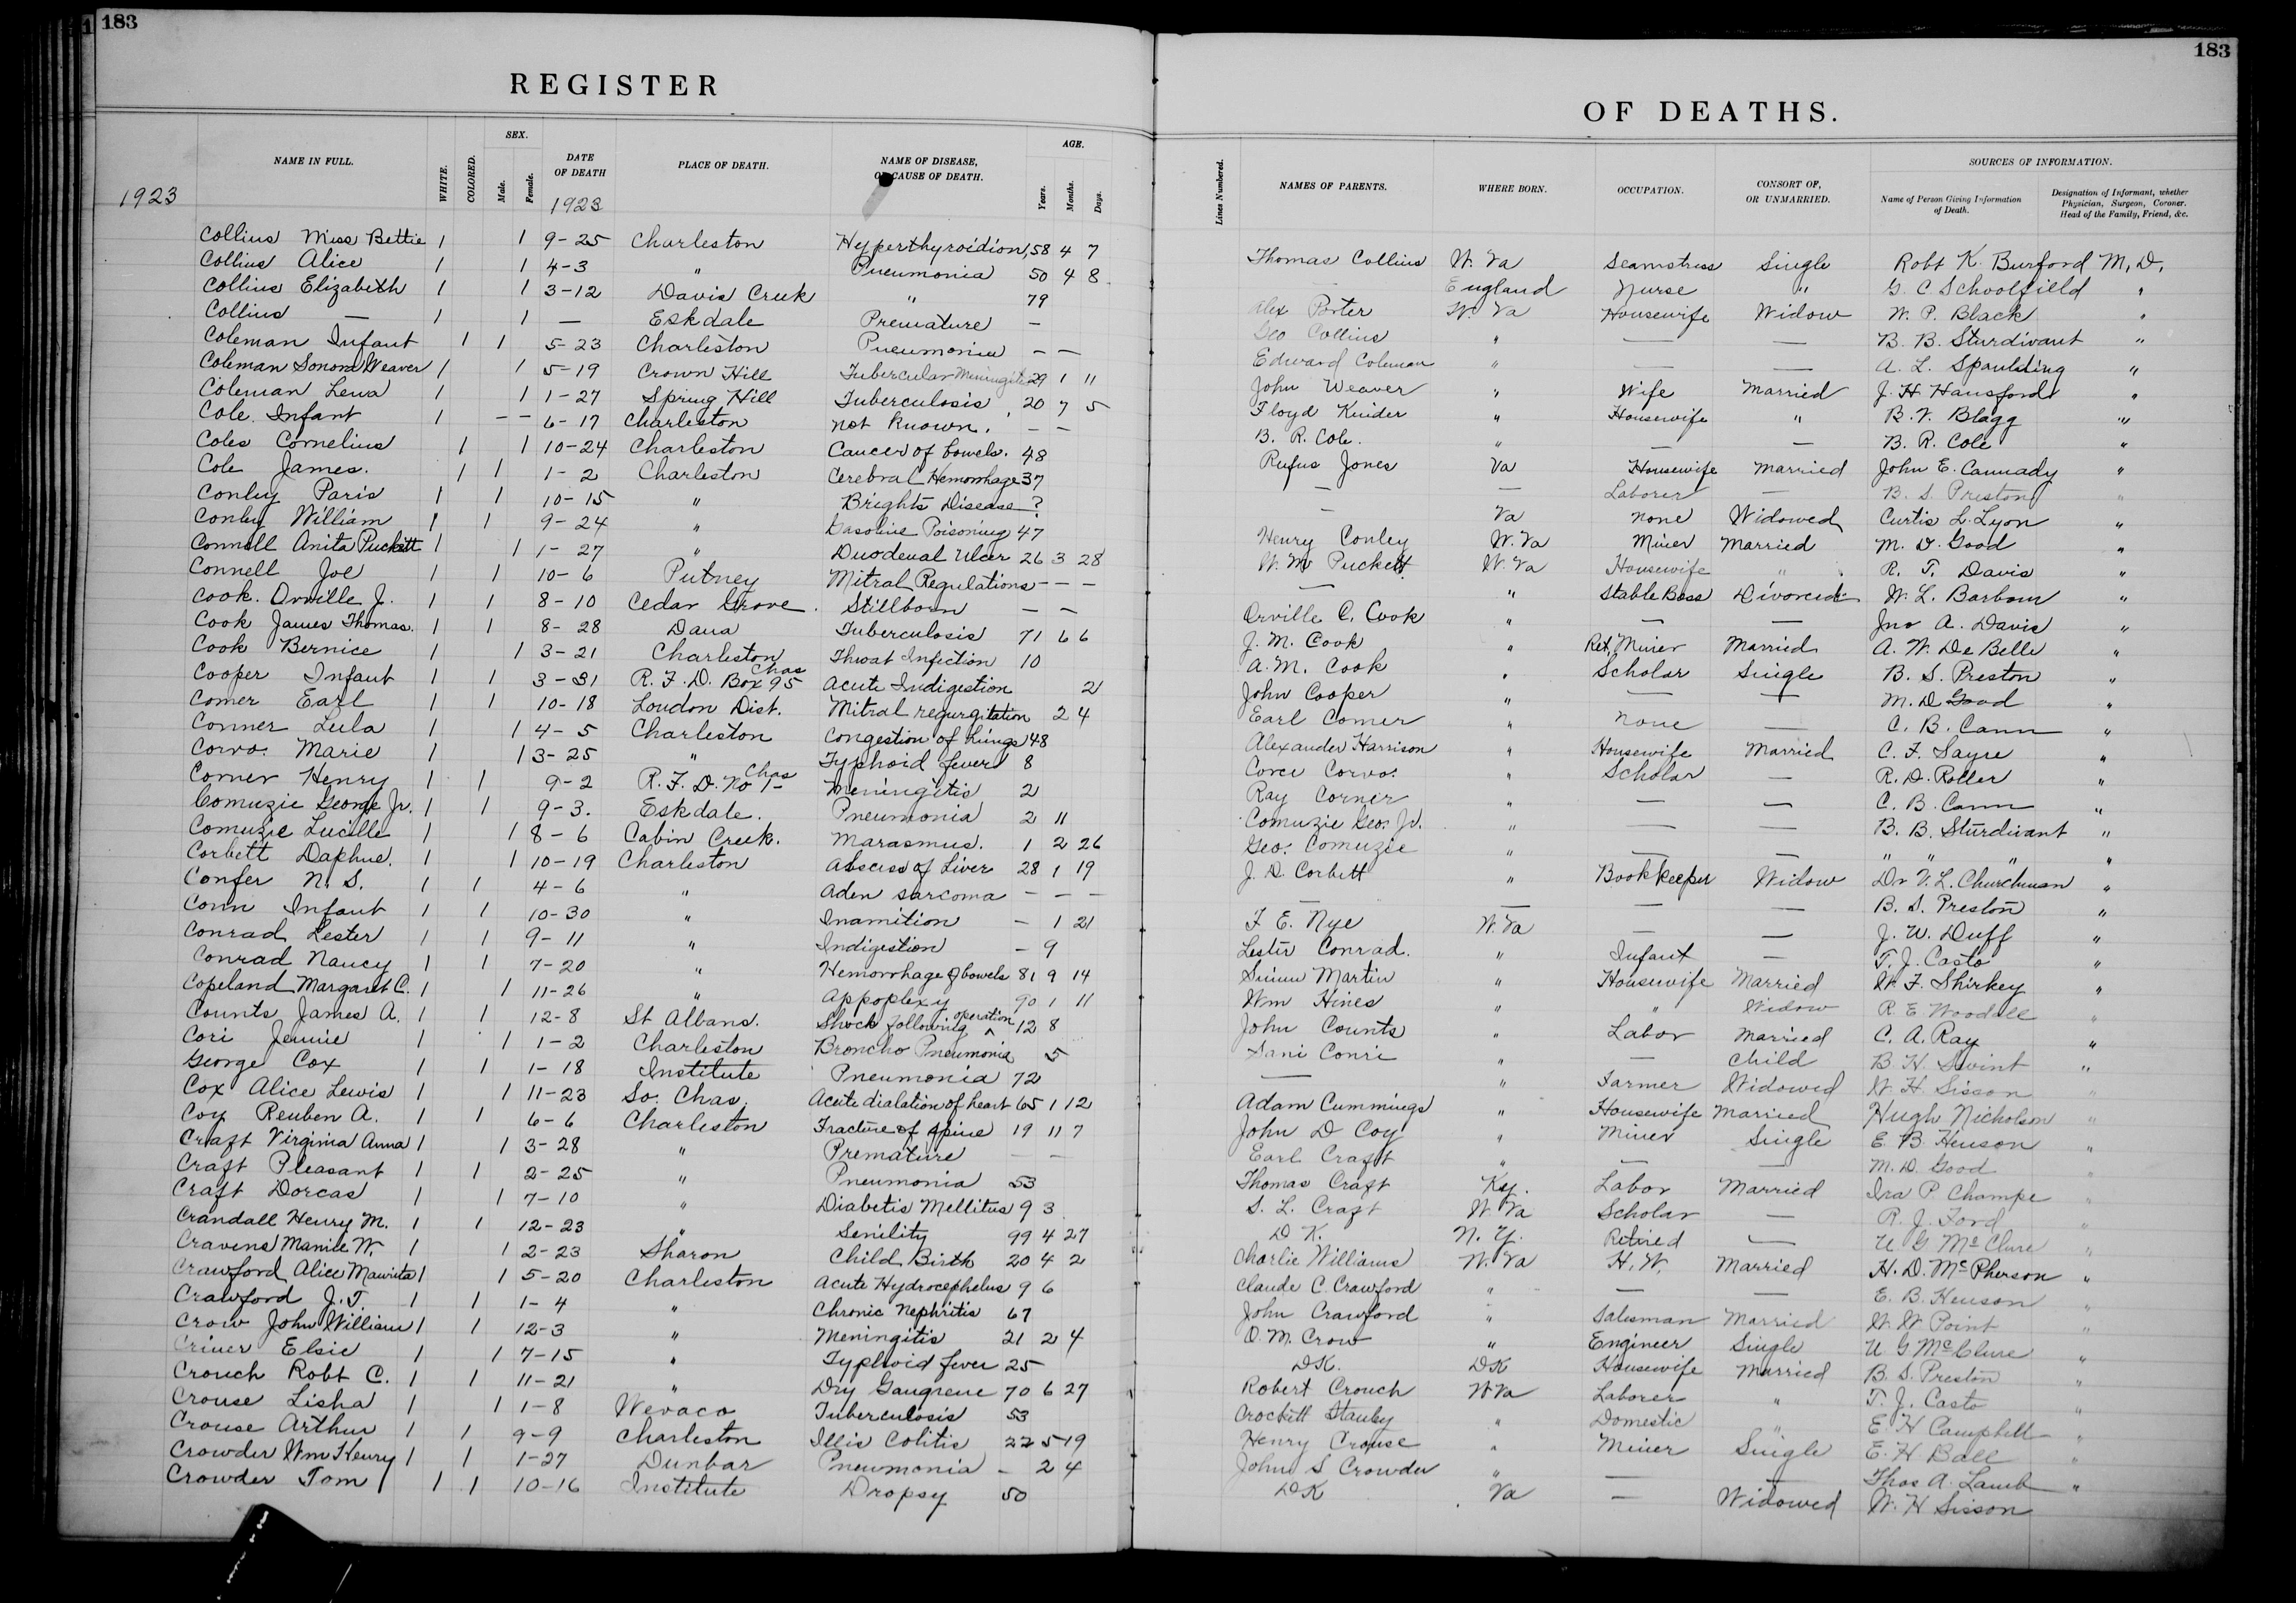 183
183
REGISTER
OF DEATHS.
1923
NAME IN FULL. WHITE. COLORED. SEX. Male. Female. DATE OF DEATH 1923 PLACE OF DEATH. NAME OF DISEASE, OR CAUSE OF DEATH. AGE. Years. Months. Days. Lines Numbered. NAMES OF PARENTS. WHERE BORN. OCCUPATION. CONSORT OF, OR UNMARRIED. SOURCES OF INFORMATION. Name of Person Giving Information of Death. Designation of Informant, whether Physician, Surgeon, Coroner. Head of the Family, Friend, &c.
Collins Miss Bettie 1 1 9-25 Charleston Hyperthyroidion, 58 4 7 Thomas Collins W. Va Seamstress Single Robt K. Burford M, D,
Collins Alice 1 1 4-3 " Pneumonia 50 4 8 — England Nurse " G. C Schoolfield "
Collins Elizabeth 1 1 3-12 Davis Creek " 79 Alex Porter W. Va Housewife Widow W. P. Black "
Collins — 1 1 — Eskdale Premature — Geo Collins " — — B. B. Sturdivant "
Coleman Infant 1 1 5-23 Charleston Pneumonia — — Edward Coleman " — — A. L. Spaulding "
Coleman Sonora Weaver 1 1 5-19 Crown Hill Tubercular Meningitis 29 1 11 John Weaver " Wife Married J. H. Hansford "
Coleman Lena 1 1 1-27 Spring Hill Tuberculosis 20 7 5 Floyd Kinder " Housewife " B. V. Blagg "
Cole. Infant 1 — — 6-17 Charleston not Known. — — B. R. Cole. " — — B. R. Cole "
Coles Cornelius 1 1 10-24 Charleston Cancer of bowels. 48 Rufus Jones Va Housewife Married John E. Cannady "
Cole James. 1 1 1-2 Charleston Cerebral Hemorrhage 37 — — Laborer — B. S. Preston "
Conley Paris 1 1 10-15 " Brights Disease ? — Va none Widowed Curtis L. Lyon "
Conley William 1 1 9-24 " Gasoline Poisoning 47 Henry Conley W. Va Miner Married M. D. Good "
Connell Anita Puckett 1 1 1-27 " Duodenal Ulcer 26 3 28 W. M Puckett W. Va Housewife " R. T. Davis "
Connell Joe 1 1 10-6 Putney Mitral Regulations — — — — " Stable Boss Divorced W. L. Barbour "
Cook. Orville J. 1 1 8-10 Cedar Grove. Stillborn — — Orville C. Cook " — — Jno A. Davis "
Cook James Thomas. 1 1 8-28 Dana Tuberculosis 71 6 6 J. M. Cook " Ret. Miner Married A. W. De Belle "
Cook Bernice 1 1 3-21 Charleston Throat Infection 10 A. M. Cook " Scholar Single B. S. Preston "
Cooper Infant 1 1 3-31 R. F. D. Box 95 Chas Acute Indigestion 2 John Cooper " — — M. D Good "
Comer Earl 1 1 10-18 Loudon Dist. Mitral regurgitation 2 4 Earl Comer " none — C. B. Cann "
Conner Lula 1 1 4-5 Charleston Congestion of lungs 48 Alexander Harrison " Housewife Married C. F. Sayre "
Corvo. Marie 1 1 3-25 " Typhoid fever 8 Corvo. " Scholar — R. D. Roller "
Corner Henry 1 1 9-2 R. F. D. No 1- Chas Meningitis 2 Ray Corner " — — C. B. Cann "
Comuzie George Jr. 1 1 9-3. Eskdale. Pneumonia 2 11 Comuzie Geo. Jr. " — — B. B. Sturdivant "
Comuzie Lucille 1 1 8-6 Cabin Creek. Marasmus. 1 2 26 Geo. Comuzie " — — " " " "
Corbett Daphne. 1 1 10-19 Charleston Abscess of Liver 28 1 19 J. D. Corbett " Bookkeeper Widow Dr V. L. Churchman "
Confer N. S. 1 1 4-6 " Aden sarcoma — — — — — — — B. S. Preston "
Conn Infant 1 1 10-30 " Inamition — 1 21 F. E. Nye W. Va — — J. W. Duff "
Conrad Lester 1 1 9-11 " Indigestion — 9 Lester Conrad. " Infant — T. J. Casto "
Conrad Nancy 1 1 7-20 " Hemorrhage of bowels 81 9 14 Martin " Housewife Married W. F. Shirkey "
Copeland Margaret C. 1 1 11-26 " Appoplexy 90 1 11 Wm Hines " " Widow R. E Woodall "
Counts James A. 1 1 12-8 St Albans. Shock following operation 12 8 John Counts " Labor Married C. A. Ray "
Cori Jennie 1 1 1-2 Charleston Broncho Pneumonia 5 Sani Conri " — Child B. H. Swint "
George Cox 1 1 1-18 Institute Pneumonia 72 — " Farmer Widowed W. H. Sisson "
Cox Alice Lewis 1 1 11-23 So. Chas. Acute dialation of heart 65 1 12 Adam Cummings " Housewife Married Hugh Nicholson "
Coy Reuben A. 1 1 6-6 Charleston Fracture of spine 19 11 7 John D Coy " Miner Single E. B. Henson "
Craft Virginia Anna 1 1 3-28 " Premature — — Earl Craft " — — M. D. Good "
Craft Pleasant 1 1 2-25 " Pneumonia 53 Thomas Craft Ky. Labor Married Ira P Champe "
Craft Dorcas 1 1 7-10 " Diabetis Mellitus 9 3 S. L. Craft W Va Scholar — R. J. Ford "
Crandall Henry M. 1 1 12-23 " Senility 99 4 27 D K. N. Y. Retired — U G McClure "
Cravens Mamie W. 1 1 2-23 Sharon Child Birth 20 4 2 Charlie Williams W. Va H. W. Married H. D. McPherson "
Crawford Alice 1 1 5-20 Charleston Acute Hydrocephelus 9 6 Claude C. Crawford " — — E. B. Henson "
Crawford J. T. 1 1 1-4 " Chronic Nephritis 67 John Crawford " Salesman Married W. W Point "
Crow John William 1 1 12-3 " Meningitis 21 2 4 O. M. Crow " Engineer Single U G McClure "
Criner Elsie 1 1 7-15 " Typhoid fever 25 DK. DK Housewife Married B. S. Preston "
Crouch Robt C. 1 1 11-21 " Dry Gangrene 70 6 27 Robert Crouch W Va Laborer " T. J. Casto "
Crouse Lisha 1 1 1-8 Wevaco Tuberculosis 53 Crockett Stanley " Domestic " E. H Campbell "
Crouse Arthur 1 1 9-9 Charleston Illis Colitis 22 5 19 Henry Crouse " Miner Single E. H. Ball "
Crowder Wm Henry 1 1 1-27 Dunbar Pneumonia — 2 4 John S Crowder " — — Thos A. Lamb "
Crowder Tom 1 1 10-16 Institute Dropsy 50 DK Va — Widowed W. H Sisson